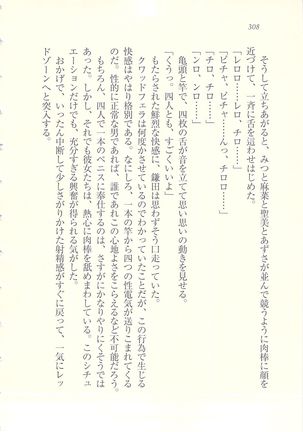 308
そうして立ちあがると、みつと麻菜と聖美とあずさが並んで競うように肉棒に顔を
近づけて、一斉に舌を這わせはじめた。
「レロロ……レロ、チロロ……」
「ピチャ、ピチャ……んんっ、チロロ……」
「チロ、チロ……」
「ンロ、ンロロ……」
亀頭と竿で、四枚の舌が音を立てて思い思いの動きを見せる。
「くうっ。四人とも、すごくいいよ」
もたらされた鮮烈な快感に、鎌田は思わずそう口走っていた。
クワッドフェラは何度かさせているのでわかっていたことだが、この行為で生じる
快感はやはり格別である。なにしろ、一本の竿から四つの性電気が送りこまれてくる
のだ。性的に正常な男であれば、誰であれこの心地よさをこらえるなど不可能だろう。
もちろん、四人で一本のペニスに奉仕するのは、さすがにかなりやりにくそうでは
あった。しかし、それでも彼女たちは、熱心に肉棒を舐めまわしている。このシチュ
エーションだけでも、充分すぎる興奮が得られる気がした。
おかげで、いったん中断して少しさがりかけた射精感がすぐに戻って、一気にレッ
ドゾーンへと突入する。